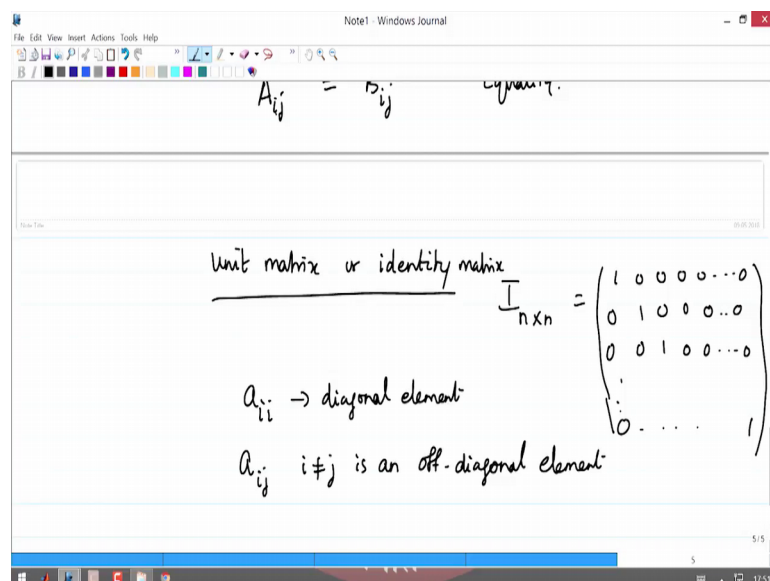 Note1 - Windows Journal
File Edit View Insert Actions Tools Help
B I
A_ij = B_ij Equality.
Note Title
Unit matrix or identity matrix
I_n×n = ( 1 0 0 0 0 ... 0
0 1 0 0 0 .. 0
0 0 1 0 0 ... 0
:
0 . . . . 1 )
a_ii → diagonal element
a_ij i≠j is an off-diagonal element
5/5
5